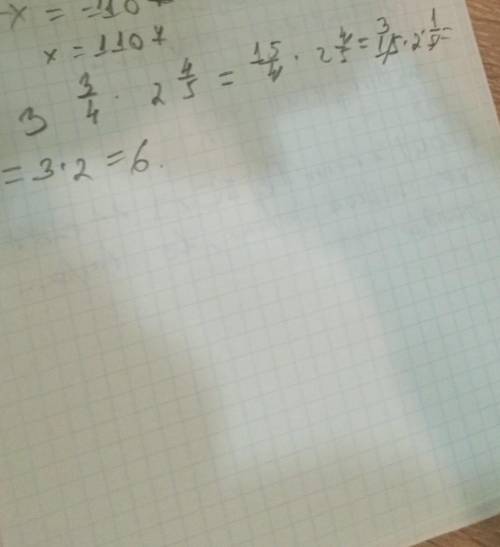 -x = -110
x = 1107
3 3/4 · 2 4/5 = 15/4 · 2 4/5 = 15 3 · 2 1/5 =
= 3 · 2 = 6.